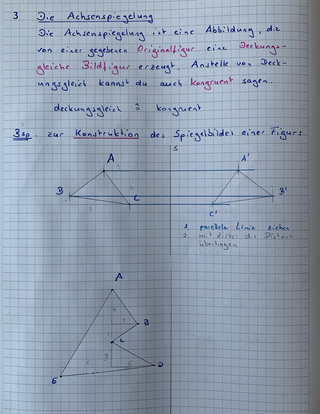 3 Die Achsenspiegelung
Die Achsenspiegelung ist eine Abbildung, die
von einer gegebenen Originalfigur eine Deckungs-
gleiche Bildfigur erzeugt. Anstelle von Deck-
ungsgleich kannst du auch kongruent sagen.
deckungsgleich = kongruent
Bsp. zur Konstruktion des Spiegelbildes einer Figur:
S
A A'
B C B'
C'
1. parallele Linie ziehen
2. mit Zirkel die Distanz
übertragen
A
B
C
D
E